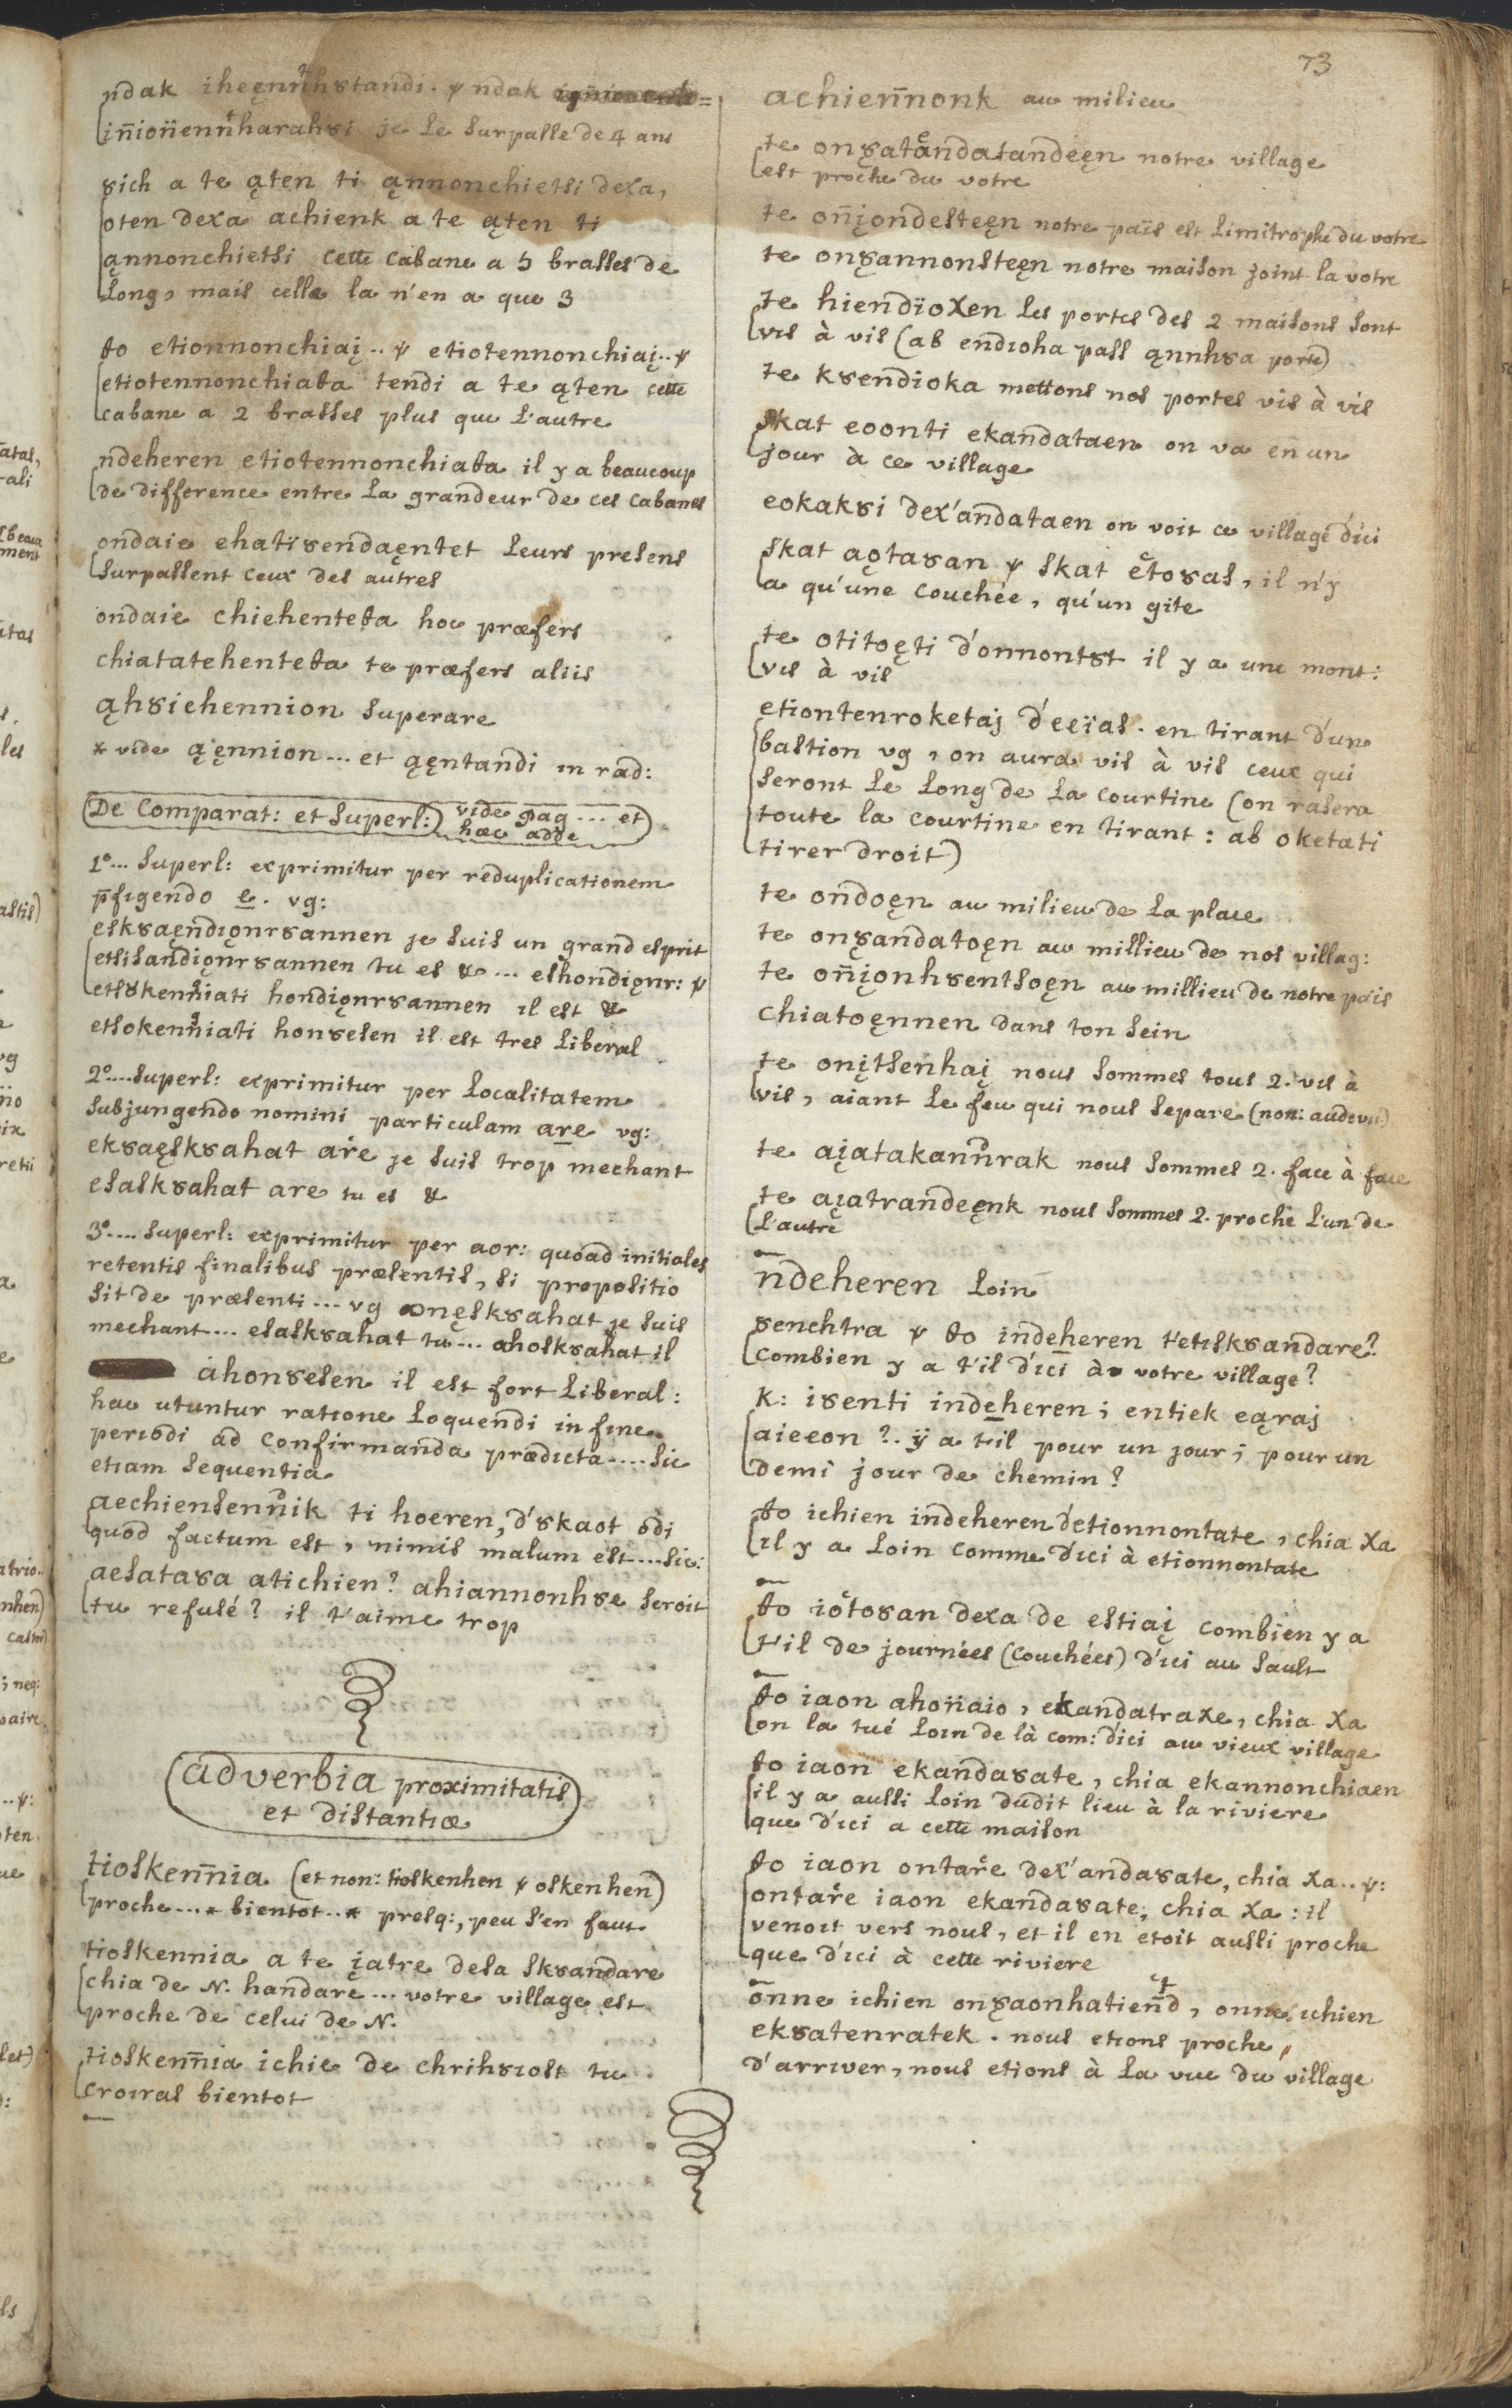 73
ndak iheęnnhȣtandi. ѱ ndak
in̄ion̄ennharahȣi je le surpasse de 4 ans
ȣich a te ąten ti ąnnonchietsi dexa,
oten dexa achienk a te ąten ti
ąnnonchietsi cette cabane a 5 brasses de
long, mais celle la n'en a que 3
ꝋo etionnonchiaį.. ѱ etiotennonchiaį.. ѱ
etiotennonchiaꝋa tendi a te ąten cette
cabane a 2 brasses plus que l'autre
ndeheren etiotennonchiaꝋa il y a beaucoup
de difference entre la grandeur de ces cabanes
ondaie ehatiȣendaęntet leurs presens
surpassent ceux des autres
ondaie chiehenteꝋa hoc præfers
chiatatehenteꝋa te præfers aliis
ąhȣichennion superare
* vide ąęnnion... et ąęntandi in rad:
De Comparat: et superl: vide pag... et
hæc adde
1°... superl: exprimitur per reduplicationem
p̄figendo e. vg:
eskȣaęndįonrȣannen je suis un grand esprit
etsisandįonrȣannen tu es &... eshondįonr: ѱ
etsokenn̄iati hondįonrȣannen il est &
etsokenn̄iati honȣesen il est tres liberal
2°.... superl: exprimitur per localitatem
subjungendo nomini particulam are vg:
ekȣaęskȣahat are je suis trop mechant
esaskȣahat are tu es &
3°.... superl: exprimitur per aor: quoad initiales
retentis finalibus præsentis, si propositio
sit de præsenti... vg onęskȣahat je suis
mechant... esaskȣahat tu... ahoskȣahat il
ahonȣesen il est fort liberal:
hac utuntur ratione loquendi in fine
periodi ad confirmanda prædicta.... sic
etiam sequentia
aechiensennik ti hoeren, d'ȣkaot odi
quod factum est, nimis malum est.... sic:
aesataȣa atichien? ahiannonhȣe seroit
tu refusé? il t'aime trop
adverbia proximitatis
et distantiæ
tioskenn̄ia (et non: tioskenhen ѱ oskenhen)
proche...* bientot..* presq:, peu s'en faut
tioskennia a te įatre desa skȣandare
chia de N. handare... votre village est
proche de celui de N.
tioskenn̄ia ichie de chrihȣiost tu
croiras bientot
achien̄nonk au milieu
te onȣatandatandeęn notre village
est proche du votre
te on̄įondesteęn notre païs est limitrophe du votre
te onȣannonsteęn notre maison joint la votre
te hiendïoxen les portes des 2 maisons sont
vis à vis (ab endioha pass ąnnhȣa porte)
te kȣendioka mettons nos portes vis à vis
skat eoonti ekandataen on va en un
jour à ce village
eokakȣi dex'andataen on voit ce village d'ici
skat aǫtaȣan ѱ skat etoȣas, il n'y
a qu'une couchée, qu'un gite
te otitoęti d'onnontȣt il y a une mont:
vis à vis
etiontenroketaį d'eeïas. en tirant d'un
bastion vg, on aura vis à vis ceux qui
seront le long de la courtine (on rasera
toute la courtine en tirant: ab oketati
tirer droit)
te ondoęn au milieu de la place
te onȣandatoęn au millieu de nos villag:
te on̄įonhȣentsoęn au millieu de notre païs
chiatoęnnen dans ton sein
te onįtsenhaį nous sommes tous 2. vis à
vis, aiant le feu qui nous separe (non: audivi)
te aįatakannrak nous sommes 2. face à face
te aįatrandeęnk nous sommes 2. proche l'un de
l'autre
n̄deheren loin
ȣenchtra ѱ ꝋo indeheren t'etiskȣandare?
combien y a t'il d'ici à votre village?
K: iȣenti indeheren; entiek eąraį
aieeon?. ÿ a t'il pour un jour; pour un
demi jour de chemin?
ꝋo ichien indeheren d'etionnontate, chia xa
il y a loin comme d'ici à etionnontate
ꝋo iotoȣan dexa de estiaį combien y a
t'il de journées (couchées) d'ici au sault
ꝋo iaon ahon̄aio, ekandatraxe, chia xa
on la tué loin de là com: d'ici au vieux village
ꝋo iaon ekandaȣate, chia ekannonchiaen
il y a aussi loin dudit lieu à la riviere
que d'ici a cette maison
ꝋo iaon ontare dex'andaȣate, chia xa.. ѱ:
ontare iaon ekandaȣate, chia xa: il
venoit vers nous, et il en etoit aussi proche
que d'ici à cette riviere
onne ichien onȣaonhatiend, onne ichien
ekȣatenratek. nous etions proche
d'arriver, nous etions à la vue du village